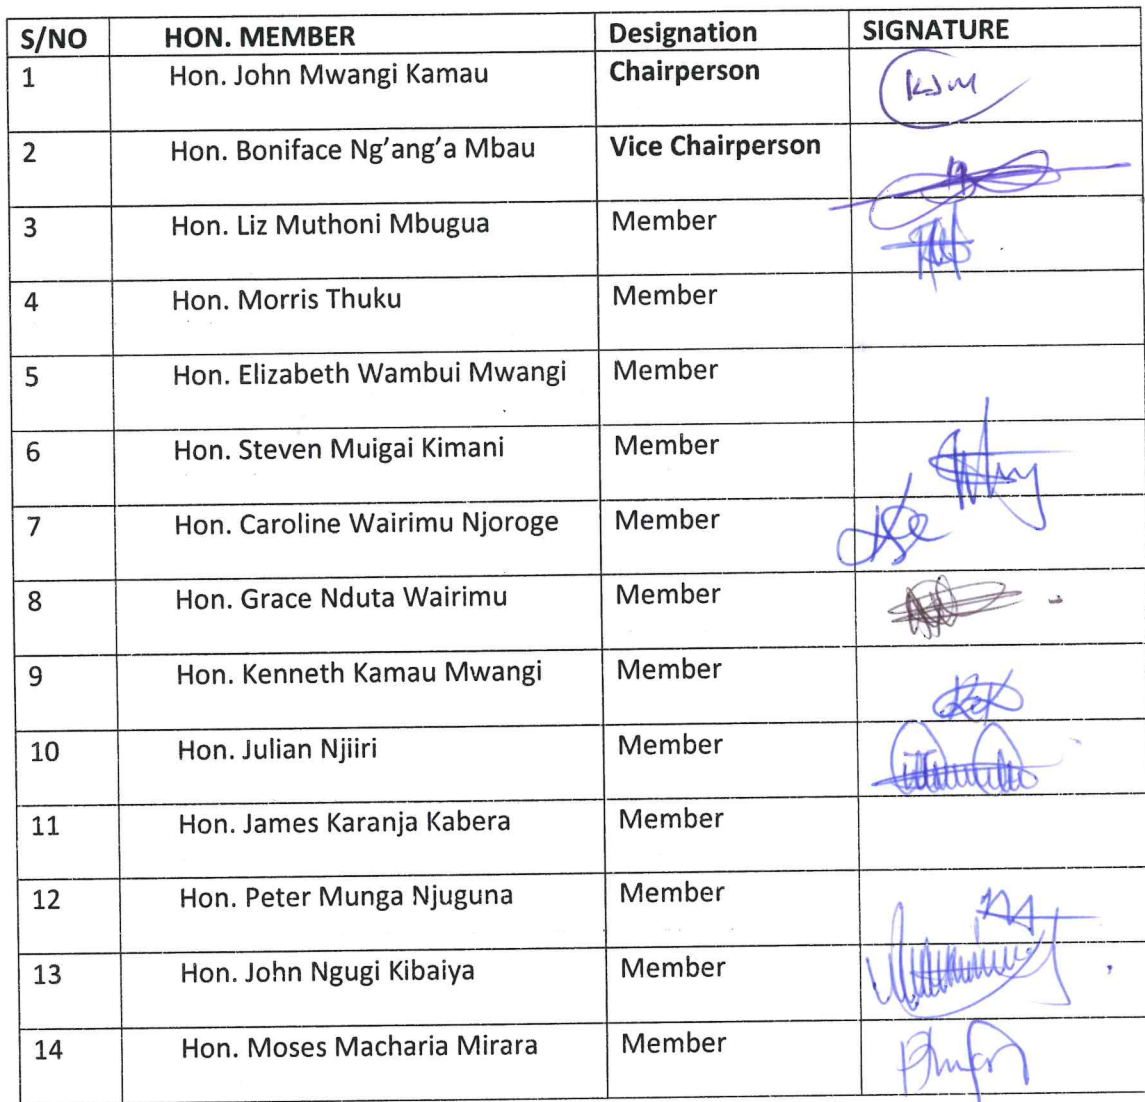 S/NO HON. MEMBER Designation SIGNATURE
1 Hon. John Mwangi Kamau Chairperson KJM
2 Hon. Boniface Ng'ang'a Mbau Vice Chairperson
3 Hon. Liz Muthoni Mbugua Member
4 Hon. Morris Thuku Member
5 Hon. Elizabeth Wambui Mwangi Member
6 Hon. Steven Muigai Kimani Member
7 Hon. Caroline Wairimu Njoroge Member
8 Hon. Grace Nduta Wairimu Member
9 Hon. Kenneth Kamau Mwangi Member
10 Hon. Julian Njiiri Member
11 Hon. James Karanja Kabera Member
12 Hon. Peter Munga Njuguna Member
13 Hon. John Ngugi Kibaiya Member
14 Hon. Moses Macharia Mirara Member